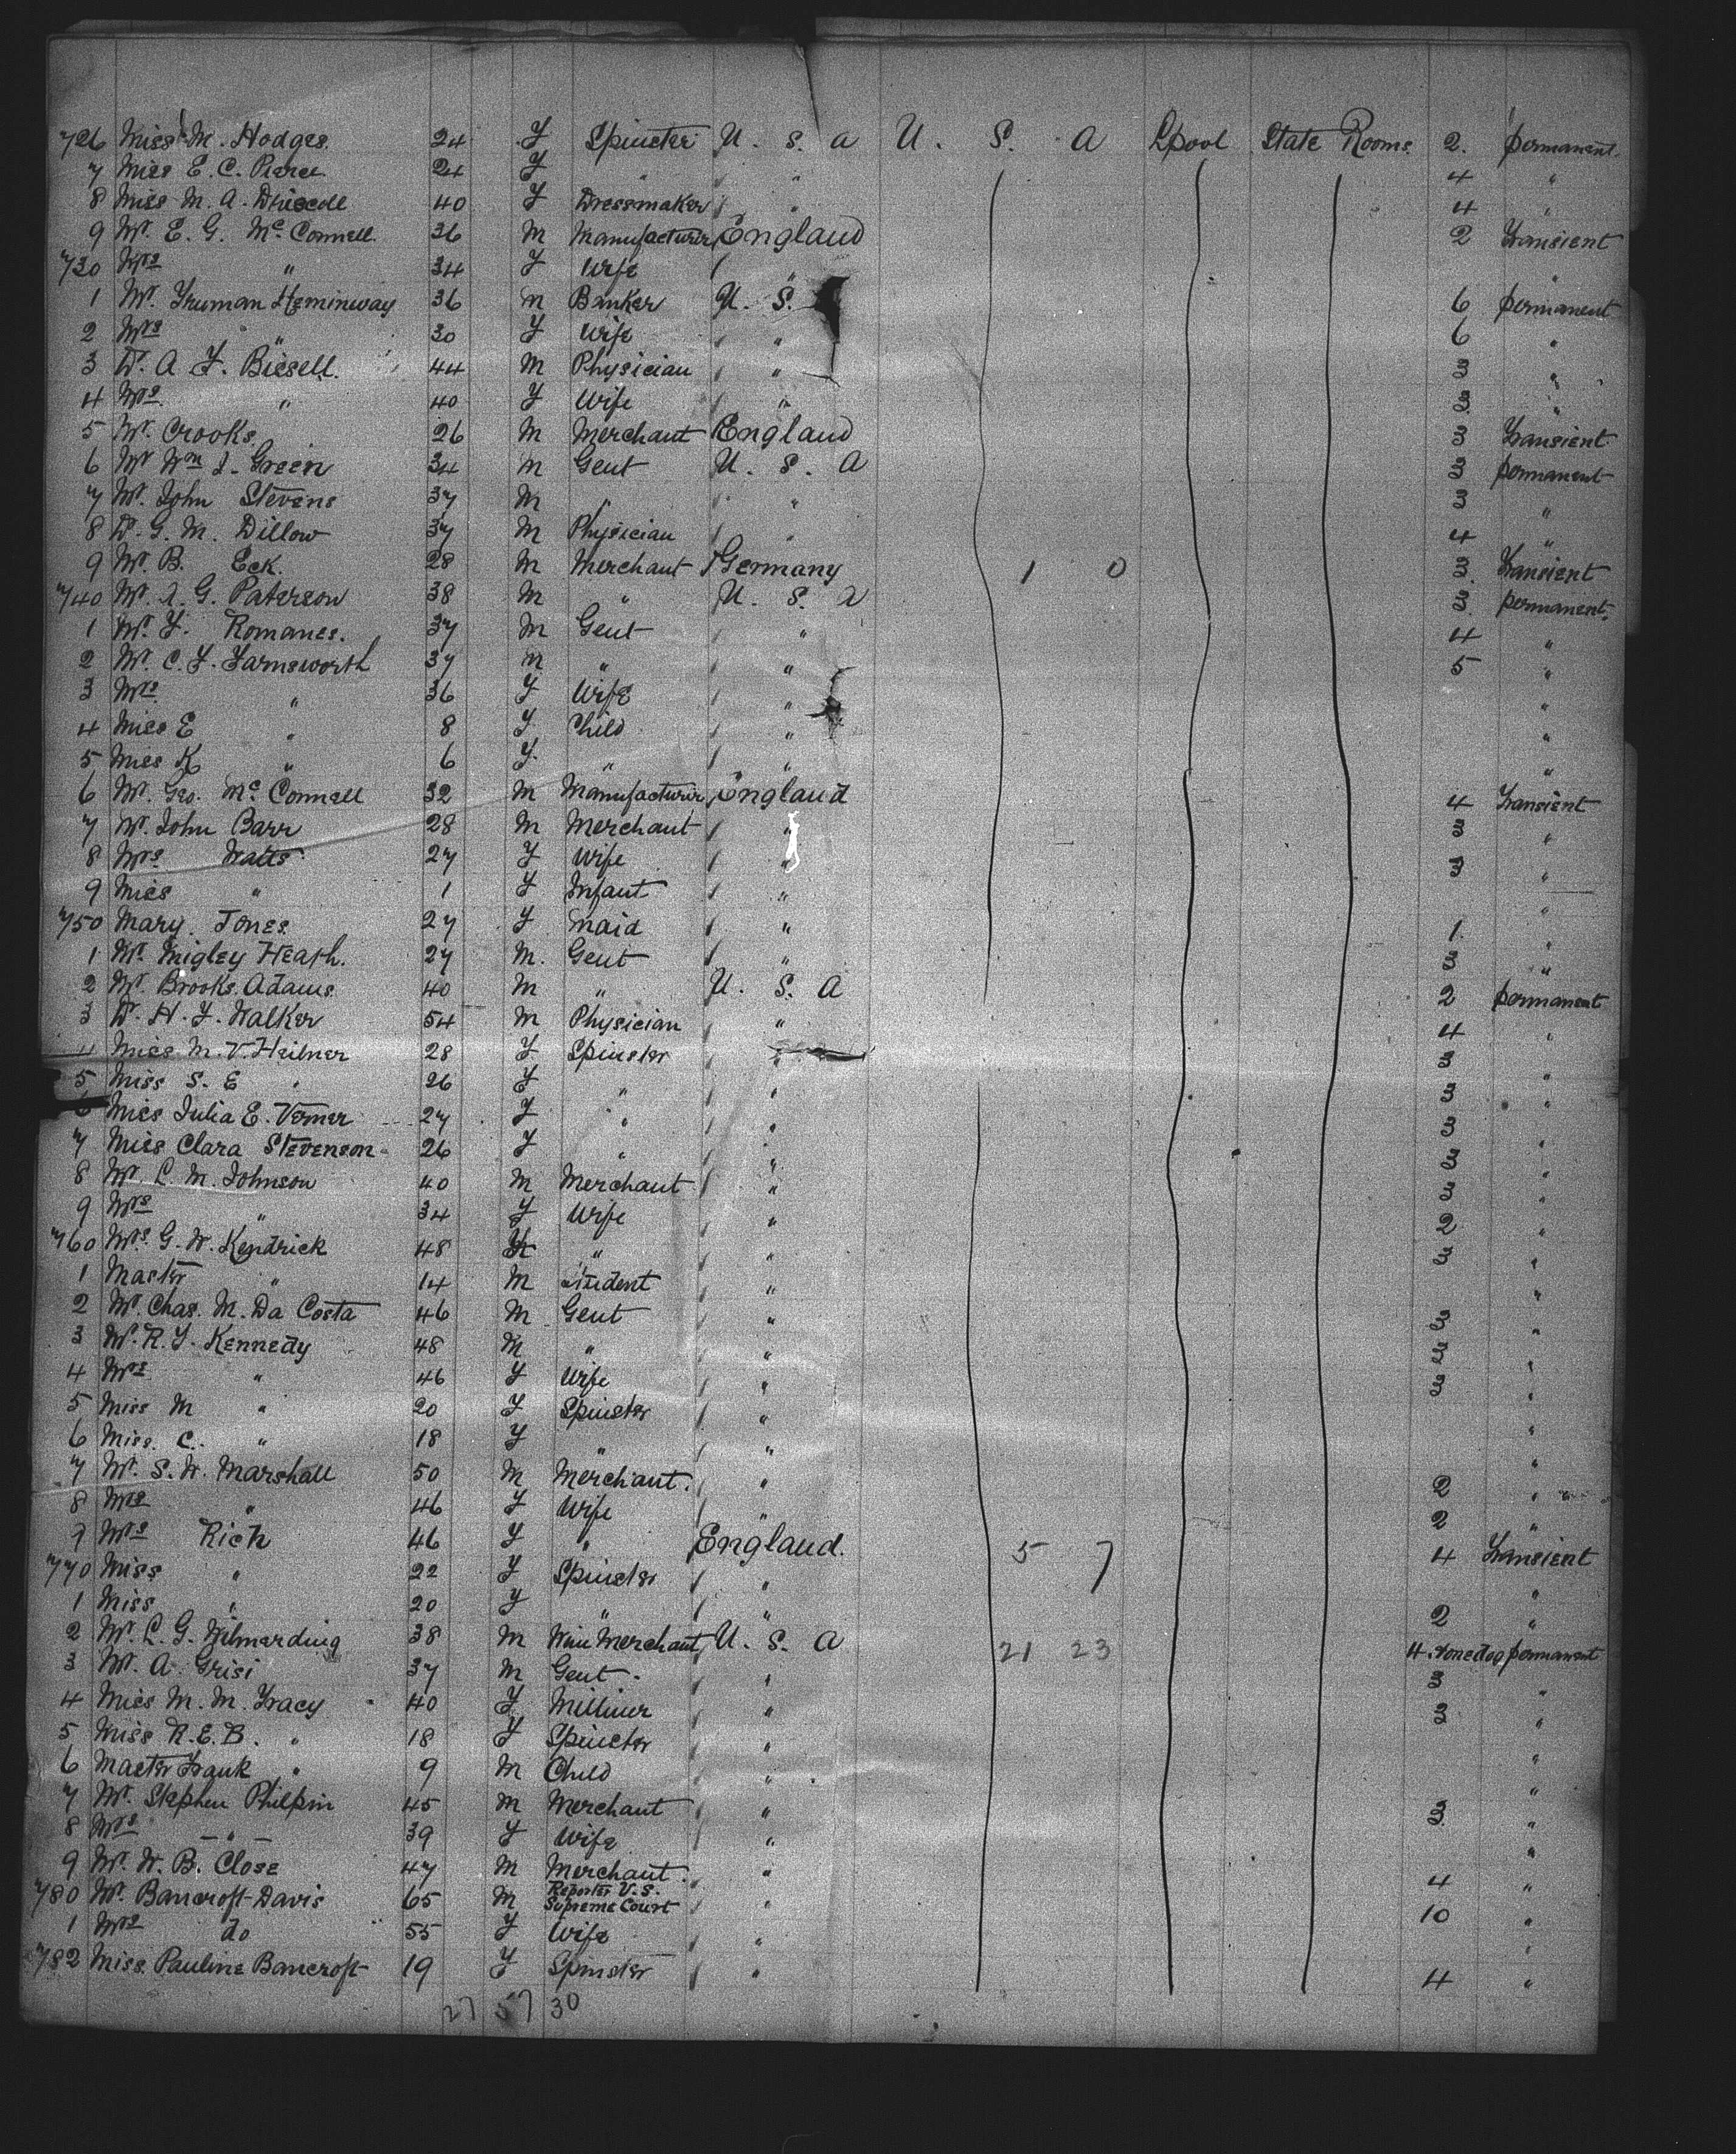 726 Miss M. Hodges. 24 F Spinster U. S. A U. S. A Lpool State Rooms. 2. permanent.
7 Miss E. C. Pierce 24 F " " 4 "
8 Miss M. A. Driscoll 40 F Dressmaker " 4 "
9 Mr. E. G. McConnell. 36 M Manufacturer England 2 Transient
730 Mrs " 34 F Wife " "
1 Mr. Truman Heminway 36 M Banker U. S. 6 permanent
2 Mrs " 30 F Wife " 6 "
3 Dr. A F. Bissell. 44 M Physician " 3 "
4 Mrs. " 40 F Wife " 3 "
5 Mr. Crooks. 26 M Merchant England 3 Transient
6 Mr Wm J. Green 34 M Gent U. S. A 3 permanent
7 Mr. John Stevens 37 M " " 3 "
8 Dr. G. M. Dillow 37 M Physician " 4 "
9 Mr. B. Eck. 28 M Merchant Germany 1 0 3. Transient
740 Mr. A. G. Paterson 38 M " U. S. A 3. permanent.
1 Mr. F. Romanes. 37 M Gent " 4 "
2 Mr. C. F. Farnsworth 37 M " " 5 "
3 Mrs " 36 F Wife " "
4 Miss E " 8 F. Child " "
5 Miss K " 6 F. " " "
6 Mr. Geo. McConnell 32 M Manufacturer England 4 Transient
7 Mr. John Barr 28 M Merchant " 3 "
8 Mrs Watts 27 F Wife " 3 "
9 Miss " 1 F Infant " "
750 Mary. Jones. 27 F Maid " 1. "
1 Mr. Migley Heath. 27 M. Gent " 3 "
2 Mr. Brooks. Adams. 40 M " U. S. A 2 permanent
3 Dr. H. F. Walker 54 M Physician " 4 "
4 Miss M. V. Heilner 28 F Spinster " 3 "
5 Miss S. E " 26 F " " 3 "
6 Miss Julia E. Verner 27 F " " 3 "
7 Miss Clara Stevenson 26 F " " 3 "
8 Mr. L. M. Johnson 40 M Merchant " 3 "
9 Mrs " 34 F Wife " 2 "
760 Mrs. G. W. Kendrick 48 F " " 3 "
1 Master " 14 M Student " "
2 Mr. Chas. M. Da Costa 46 M Gent " 3 "
3 Mr. R. F. Kennedy 48 M " " 3 "
4 Mrs " 46 F Wife " 3 "
5 Miss M " 20 F Spinster " "
6 Miss. C. " 18 F " " "
7 Mr. S. W. Marshall 50 M Merchant. " 2 "
8 Mrs " 46 F Wife " 2 "
9 Mrs Rich 46 F " England. 5 7 4 Transient
770 Miss " 22 F Spinster " "
1 Miss " 20 F " " 2 "
2 Mr. L. G. Wilmerding 38 M Wine Merchant U. S. A 21 23 4. & one dog permanent
3 Mr. A. Grisi 37 M Gent. " 3 "
4 Miss M. M. Tracy 40 F Milliner " 3 "
5 Miss R. E. B. " 18 F Spinster " "
6 Master Frank " 9 M Child " "
7 Mr. Stephen Philpin 45 M Merchant " 3. "
8 Mrs — " — 39 F Wife " "
9 Mr. W. B. Close 47 M Merchant. " 4 "
780 Mr. Bancroft-Davis 65 M Reporter U. S. Supreme Court " 10 "
1 Mrs Do 55 F Wife " "
782 Miss. Pauline Bancroft 19 F Spinster " 4 "
27 57 30